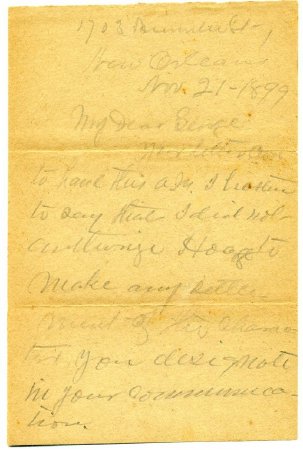 1708
New Orleans
Nov. 21-1899
My Dear George
to hand this a.m. I hasten
to say that I did not
authorize Hoge to
make any
ment of the
you designate
in your communica-
tion.